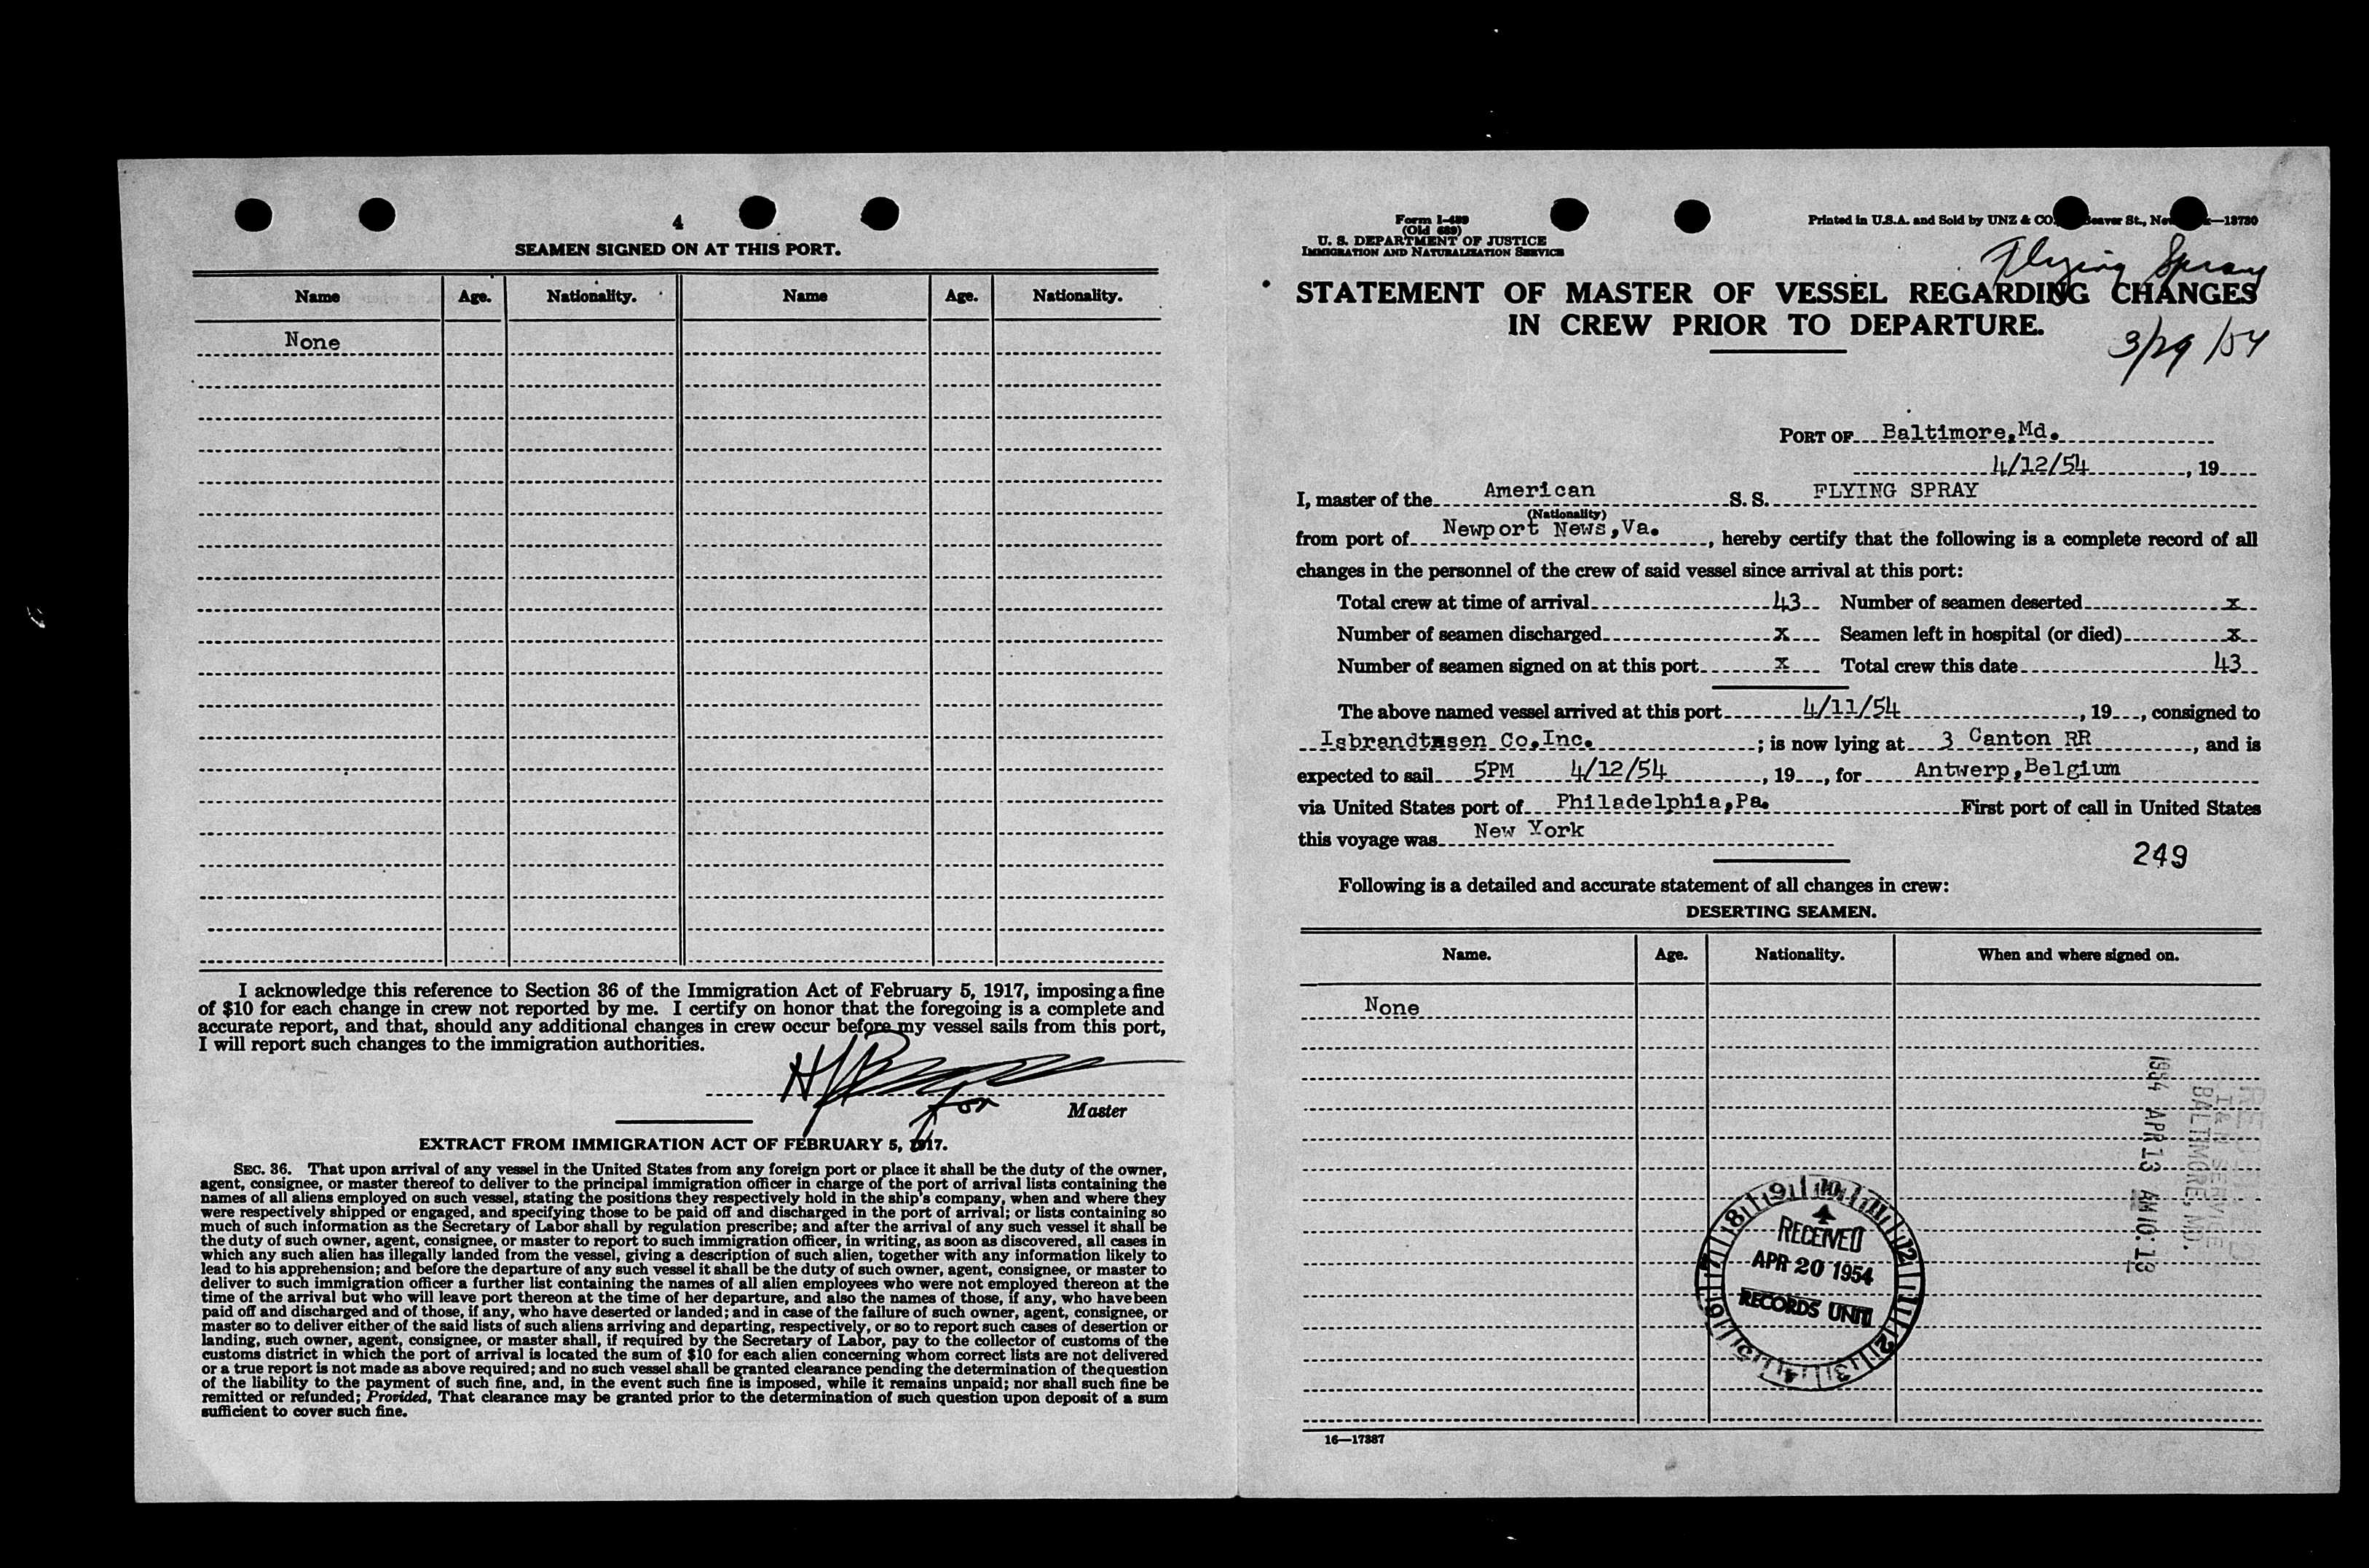 4
SEAMEN SIGNED ON AT THIS PORT.
Name Age. Nationality. Name Age. Nationality.
None
I acknowledge this reference to Section 36 of the Immigration Act of February 5, 1917, imposing a fine
of $10 for each change in crew not reported by me. I certify on honor that the foregoing is a complete and
accurate report, and that, should any additional changes in crew occur before my vessel sails from this port,
I will report such changes to the immigration authorities.
for
Master
EXTRACT FROM IMMIGRATION ACT OF FEBRUARY 5, 1917.
SEC. 36. That upon arrival of any vessel in the United States from any foreign port or place it shall be the duty of the owner,
agent, consignee, or master thereof to deliver to the principal immigration officer in charge of the port of arrival lists containing the
names of all aliens employed on such vessel, stating the positions they respectively hold in the ship's company, when and where they
were respectively shipped or engaged, and specifying those to be paid off and discharged in the port of arrival; or lists containing so
much of such information as the Secretary of Labor shall by regulation prescribe; and after the arrival of any such vessel it shall be
the duty of such owner, agent, consignee, or master to report to such immigration officer, in writing, as soon as discovered, all cases in
which any such alien has illegally landed from the vessel, giving a description of such alien, together with any information likely to
lead to his apprehension; and before the departure of any such vessel it shall be the duty of such owner, agent, consignee, or master to
deliver to such immigration officer a further list containing the names of all alien employees who were not employed thereon at the
time of the arrival but who will leave port thereon at the time of her departure, and also the names of those, if any, who have been
paid off and discharged and of those, if any, who have deserted or landed; and in case of the failure of such owner, agent, consignee, or
master so to deliver either of the said lists of such aliens arriving and departing, respectively, or so to report such cases of desertion or
landing, such owner, agent, consignee, or master shall, if required by the Secretary of Labor, pay to the collector of customs of the
customs district in which the port of arrival is located the sum of $10 for each alien concerning whom correct lists are not delivered
or a true report is not made as above required; and no such vessel shall be granted clearance pending the determination of the question
of the liability to the payment of such fine, and, in the event such fine is imposed, while it remains unpaid; nor shall such fine be
remitted or refunded; Provided, That clearance may be granted prior to the determination of such question upon deposit of a sum
sufficient to cover such fine.
Form I-489
(Old 689)
U. S. DEPARTMENT OF JUSTICE
IMMIGRATION AND NATURALIZATION SERVICE
Printed in U.S.A. and Sold by UNZ & CO. Beaver St., New —18730
Flying Spray
STATEMENT OF MASTER OF VESSEL REGARDING CHANGES
IN CREW PRIOR TO DEPARTURE.
3/29/54
PORT OF Baltimore,Md.
4/12/54 , 19
I, master of the American S. S. FLYING SPRAY
(Nationality)
from port of Newport News,Va. , hereby certify that the following is a complete record of all
changes in the personnel of the crew of said vessel since arrival at this port:
Total crew at time of arrival 43 Number of seamen deserted x
Number of seamen discharged x Seamen left in hospital (or died) x
Number of seamen signed on at this port x Total crew this date 43
The above named vessel arrived at this port 4/11/54 , 19 , consigned to
Isbrandtxsen Co.Inc. ; is now lying at 3 Canton RR , and is
expected to sail 5PM 4/12/54 , 19 , for Antwerp,Belgium
via United States port of Philadelphia,Pa. First port of call in United States
this voyage was New York
249
Following is a detailed and accurate statement of all changes in crew:
DESERTING SEAMEN.
Name. Age. Nationality. When and where signed on.
None
RECEIVED
I & N SERVICE
BALTIMORE, MD.
1954 APR 13 AM 10:13
9 10 11 12 1 2 3 4 5 6 7 8
RECEIVED
APR 20 1954
RECORDS UNIT
16—17387